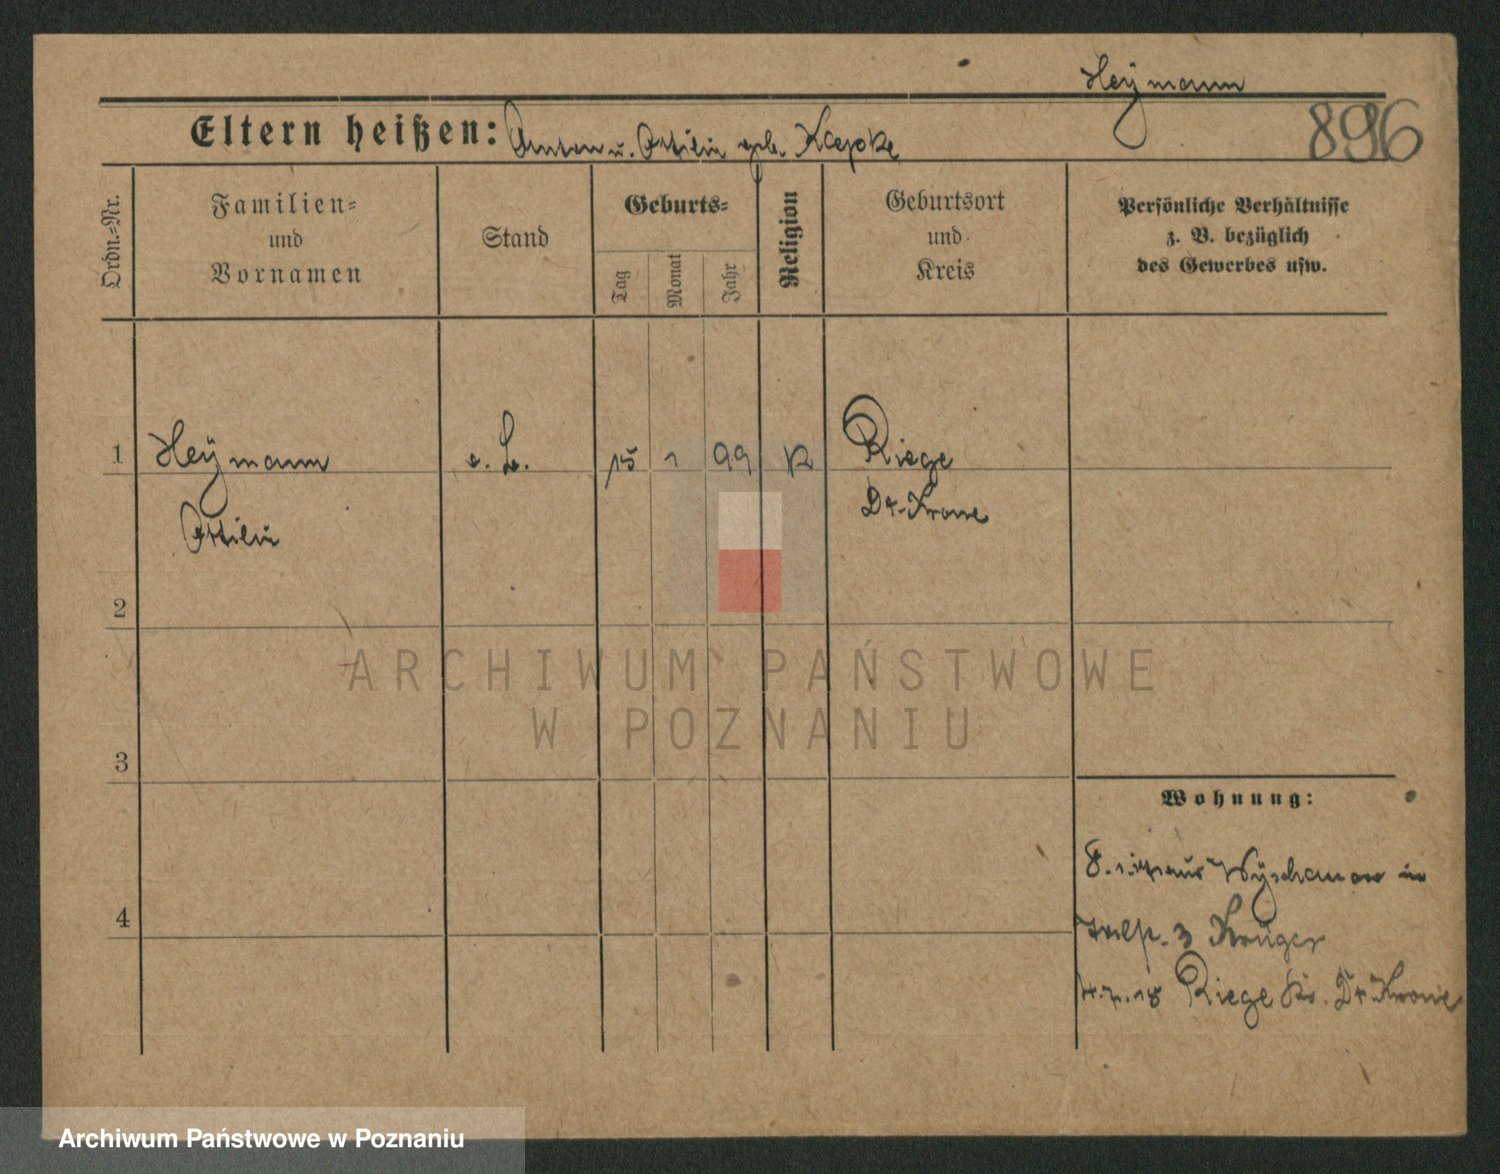 Heymann
896
Eltern heißen: Anton u. Ottilie geb. Kaepke
Ordn.=Nr.
Familien=
und
Vornamen
Stand
Geburts=
Tag
Monat
Jahr
Religion
Geburtsort
und
Kreis
Persönliche Verhältnisse
z. B. bezüglich
des Gewerbes usw.
1 Heymann 15 1 99 K Riege
Ottilie Dt-Krone
2
3
4
Wohnung:
8. aus Wyschanow in
3 Krüger
18 Riege Kr. Dt Krone
ARCHIWUM PAŃSTWOWE
W POZNANIU
Archiwum Państwowe w Poznaniu